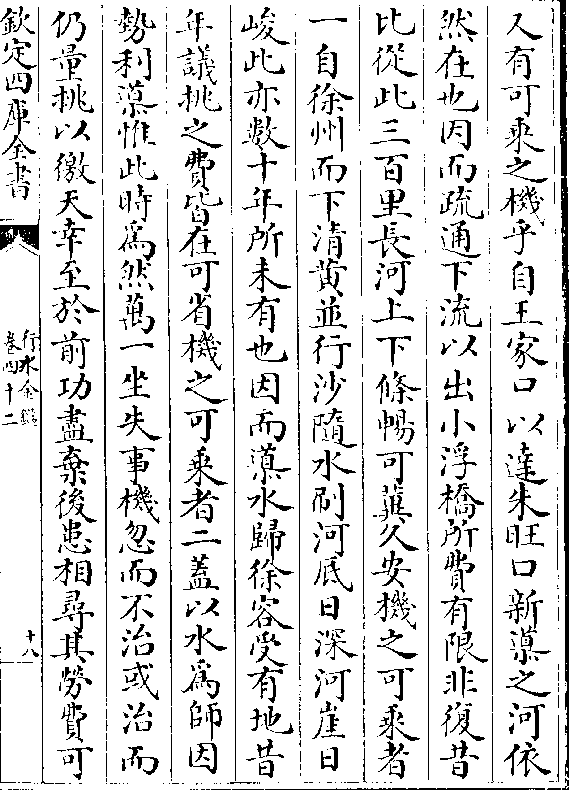 又有可乘之機乎自王家口以達朱旺口新導之河依
然在也因而疏通下流以出小浮橋所費有限非復昔
比從此三百里長河上下條暢可冀久安機之可乘者
一自徐州而下清黄並行沙隨水刷河底日深河崖日
峻此亦数十年所未有也因而導水歸徐容受有地昔
年議挑之費皆在可省機之可乘者二蓋以水爲師因
勢利導惟此時爲然萬一坐失事機忽而不治或治而
仍量挑以徼天幸至於前功盡棄後患相尋其勞費可
欽定四庫全書
行水金鑑
卷四十二
十八